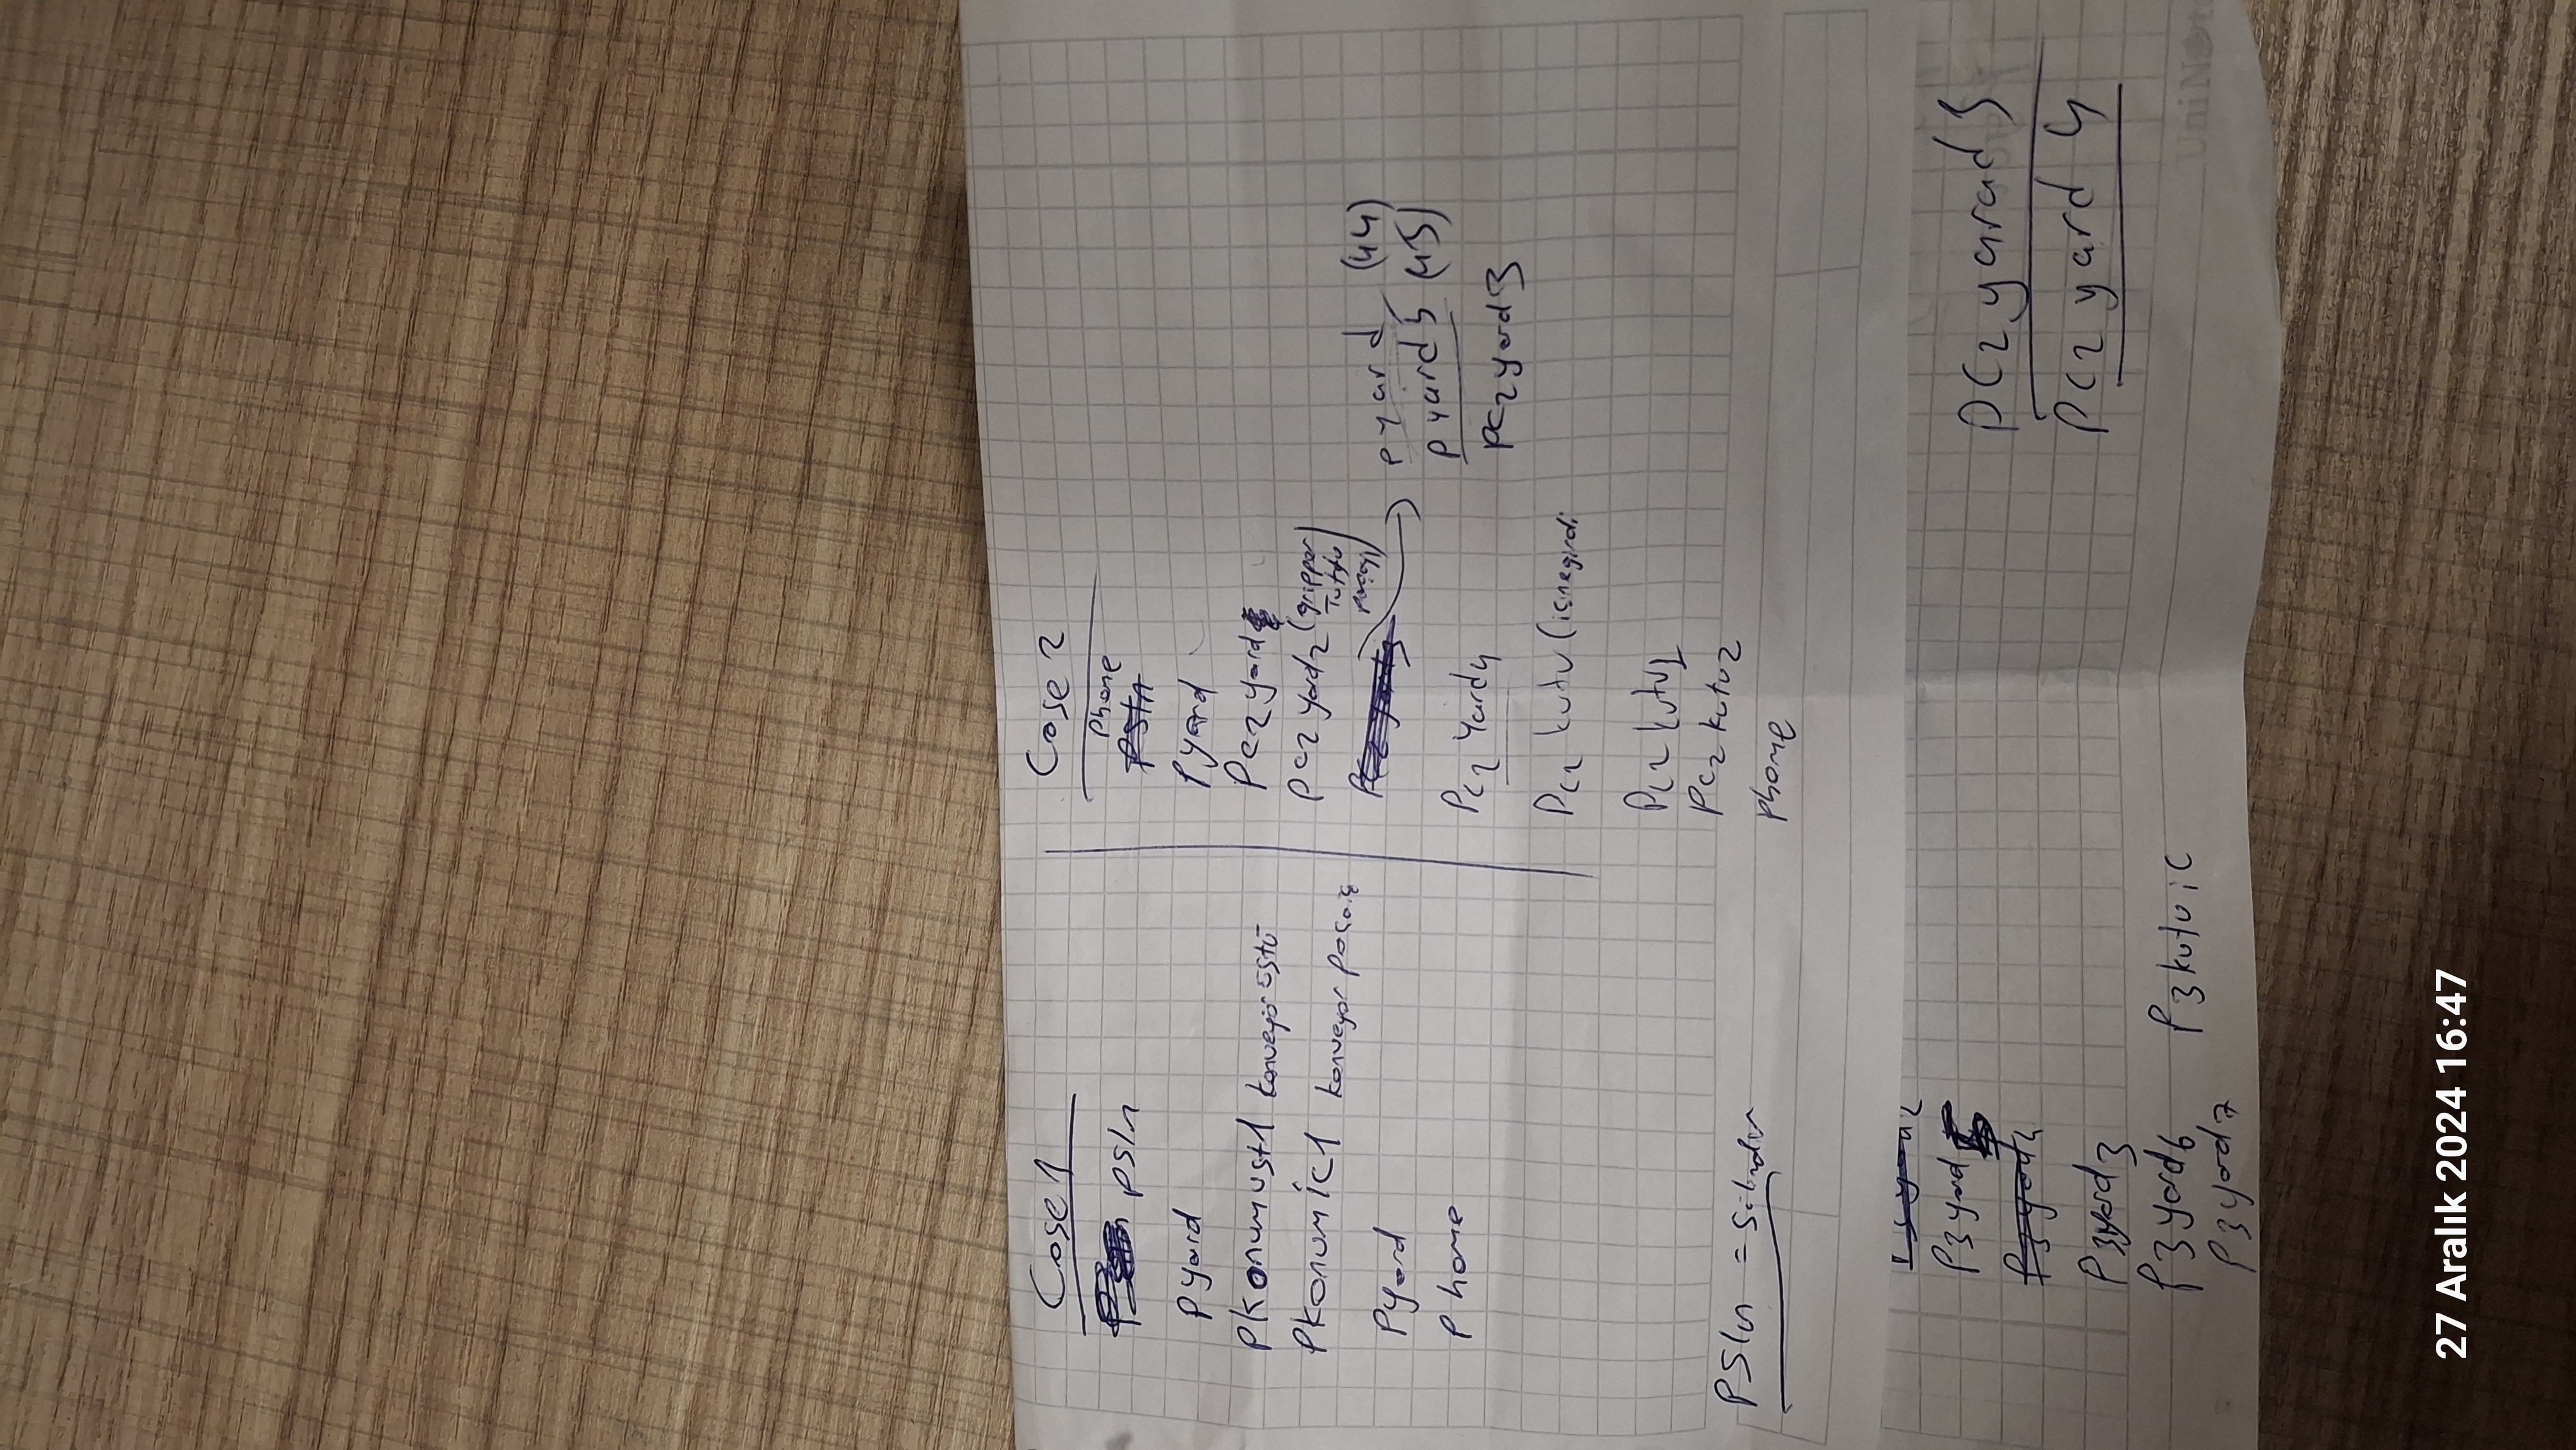 Case 1
psln
pyard
pKonumust1 konveyör üstü
PKonumic1 konveyor paça iç
Pyard
phome
Psln = Silindir
Case 2
phome
psln
pyard
Pc2 yard
pc2 yard2 (gripper
Tuttu
paçayı)
Pc2 yard3
pyard (44)
pyard5 (45)
pc2yard3
Pc2 Yard4
Pc2 kutu (içine girdi
Pc2 kutu1
Pc2 kutu2
phome
P3yard2
P3yard
P3yard4
P3yard3
P3yard6 P3kutuic
P3yard7
pc2 yarad 3
pc2 yard 4
UniNot
27 Aralık 2024 16:47